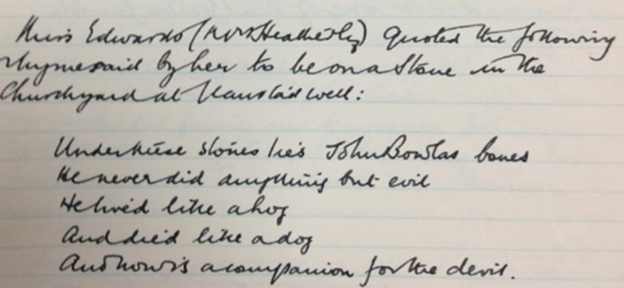 Miss Edwards (Mrs Heatherly) quoted the following
rhyme said by her to be on a stone in the
Churchyard at Llansaidwell:

Under these stones lies John Bowlas bones
He never did anything but evil
He lived like a hog
And died like a dog
And now is a companion for the devil.